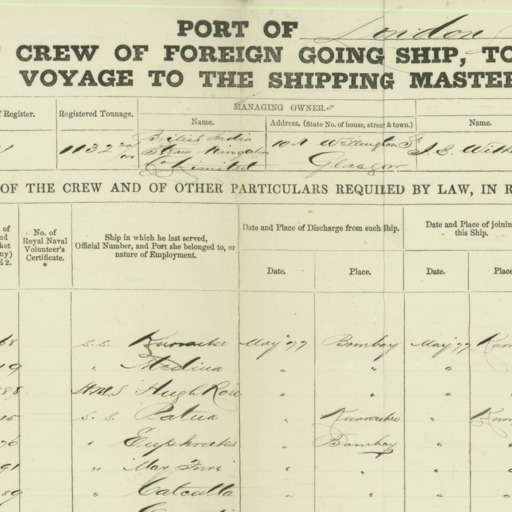 PORT OF London
CREW OF FOREIGN GOING SHIP, TO
VOYAGE TO THE SHIPPING MASTER
f Register.
Registered Tonnage.
MANAGING OWNER.
Name.
Address, (State No. of house, street & town.)
Name.
1132
British India
Steam Navigation
Co Limited
10 A Wellington St
Glasgow
OF THE CREW AND OF OTHER PARTICULARS REQUIRED BY LAW, IN R
No. of Royal Naval Volunteer's Certificate. *
Ship in which he last served,
Official Number, and Port she belonged to, or
nature of Employment.
Date and Place of Discharge from such ship.
Date. Place.
Date and Place of joining
this Ship.
Date. Place
68 s.s. Kurrachee May 77 Bombay May 77 Kurr
19 " Medina " " "
88 H.M.S Hugh Rose " " "
15 s.s. Patna " Kurrachee " Kurr
76 " Euphrates " Bombay "
91 " May " " "
89 " Calcutta " " "